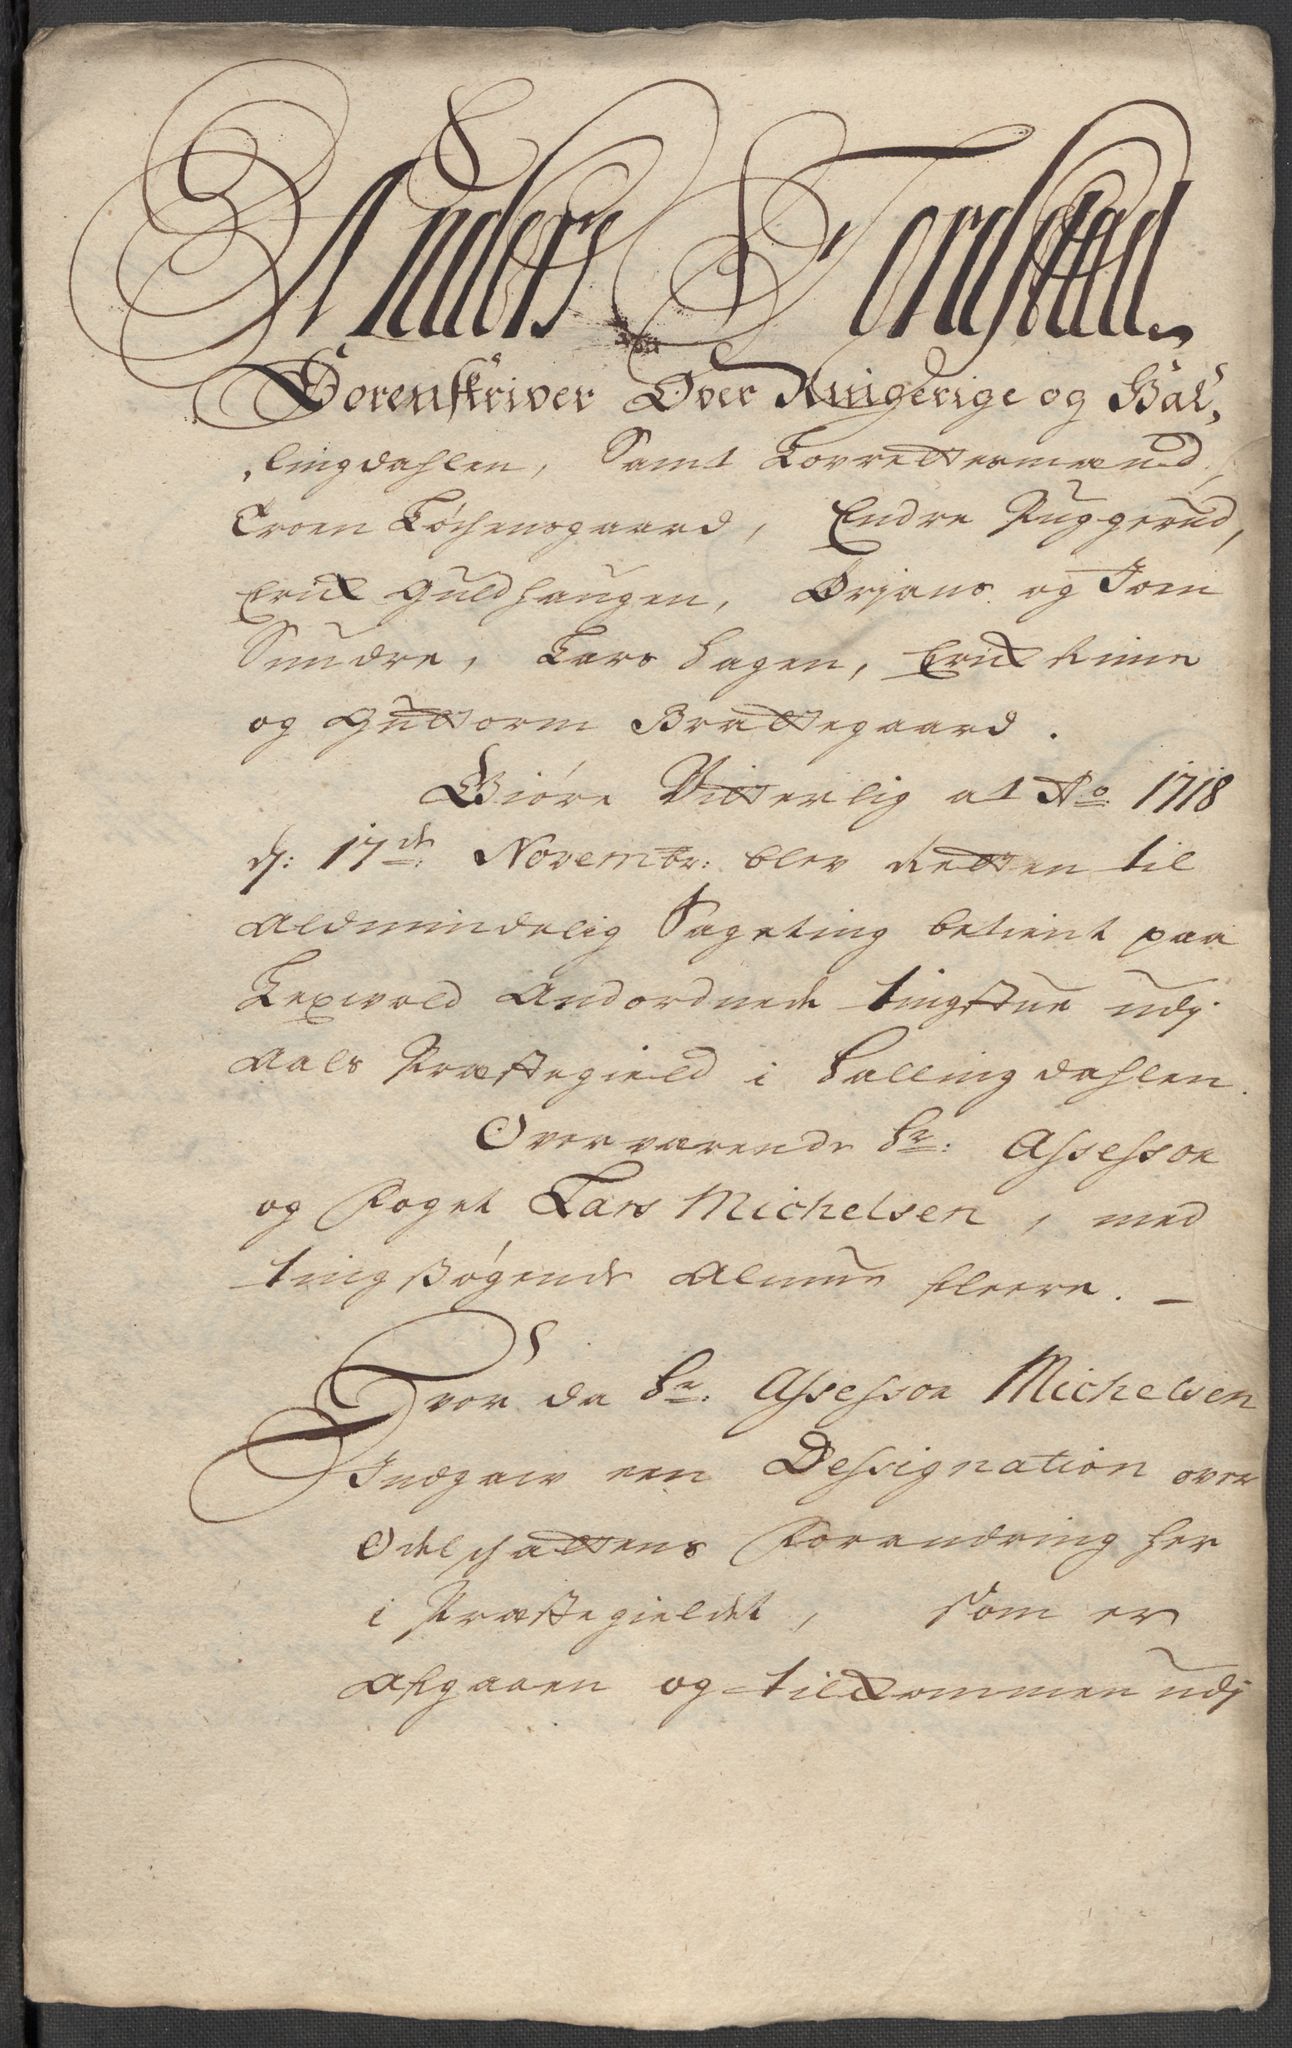 Anders Tordstad
Sorenskriver Over Ringerige og Hal,
,lingdahlen, Samt Lovrettesmænd,
Troen Tøchensgaard, Endre Ruggerud,
Erich Guldhaugen, Ørjans og Joen
Sundre, Lars Hagen, Erich Rime
og Guttorm Brattegaard.
Giøre Vitterlig at Ao: 1718
d: 17de: Novembr: blev Retten til
Aldmindelig Sageting betient paa
Lexvold Andordnede tingstue udj
Aals Præstegield i Hallingdahlen.
Overværende Hr: Assessor
og Foget Lars Michelsen, med
tingsøgende Almue fleere. –
Hvor da Hr: Assessor Michelsen
Indgaw een Dessignation over
Odelschattens Forandring her
i Præstegieldet, som er
Afgaaen og tilkommen udj